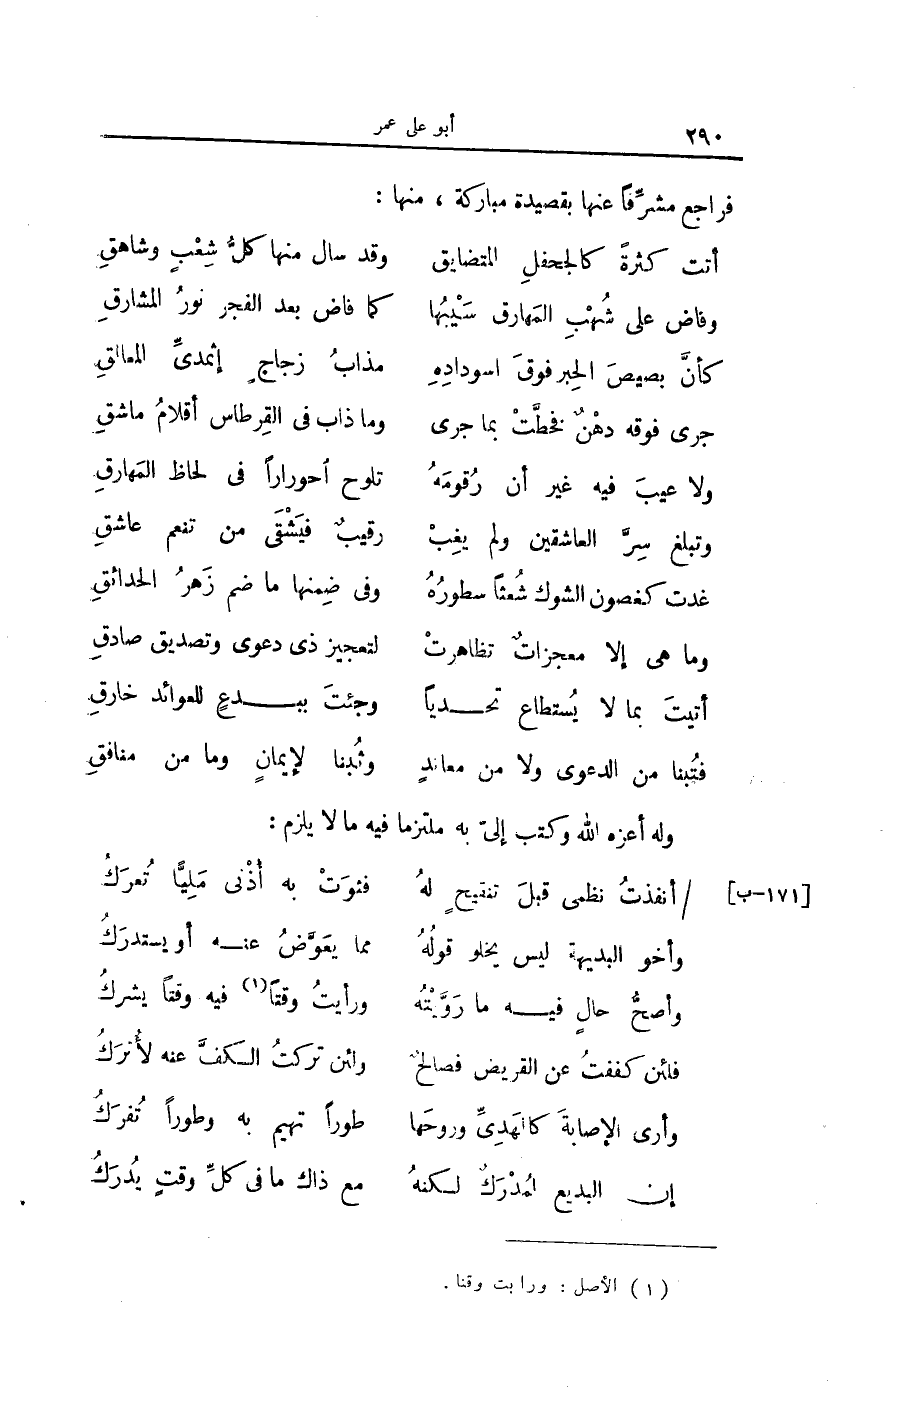 ٢٩٠ أبو على عمر
فراجع مشرِّفاً عنها بقصيدة مباركة ، منها :
أتت كثرةً كالجحفلِ المتضايق وقد سال منها كلُّ شِعْبٍ وشاهقِ
وفاض على شُهْبِ المَهارق سَيْبُها كما فاض بعد الفجر نورُ المشارقِ
كأنَّ بصيصَ الحِبر فوقَ اسودادِهِ مذابُ زجاجٍ إثمدىِّ المعالقِ
جرى فوقه دهْنٌ فخطَّتْ بما جرى وما ذاب فى القِرطاس أقلامُ ماشقِ
ولا عيبَ فيه غير أن رُقومَهُ تلوح أحوراراً فى لحاظ المَهارقِ
وتبلغ سِرَّ العاشقين ولم يغِبْ رقيبٌ فيَشْقَى من تفعم عاشقِ
غدت كغصون الشوك شُعثاً سطورُهُ وفى ضِمنها ما ضم زَهرُ الحدائقِ
وما هى إلا معجزاتٌ تظاهرتْ لتعجيز ذى دعوى وتصديق صادقِ
أتيتَ بما لا يُستطاع تحـدياً وجئتَ ببـدعٍ للعوائد خارقِ
فتُبنا من الدعوى ولا من معاندٍ وثُبنا لإيمانٍ وما من منافقِ
وله أعزه الله وكتب إلىّ به ملتزما فيه ما لا يلزم :
[١٧١-ب] / أنفذتُ نظمى قبلَ تنقيحٍ لهُ فثوَتْ به أُذْنى مَلِيًّا تُعرَكُ
وأخو البديهة ليس يخلو قولُهُ مما يعَوَّضُ عنـه أو يستدرَكُ
وأصحُّ حالٍ فيـه ما رَوَّيْتُه ورأيتُ وقفاً(١) فيه وقفاً يشركُ
فلئن كففتُ عن القريض فصالحٌ ولئن تركتُ الـكفَّ عنه لأُتركُ
وأرى الإصابةَ كالهَدِىِّ وروحَها طوراً تهيم به وطوراً تُفرَكُ
إن البديع المُدْرَكٌ لـكنهُ مع ذاك ما فى كلِّ وقتٍ يُدرَكُ
(١) الأصل : ورابت وقنا .